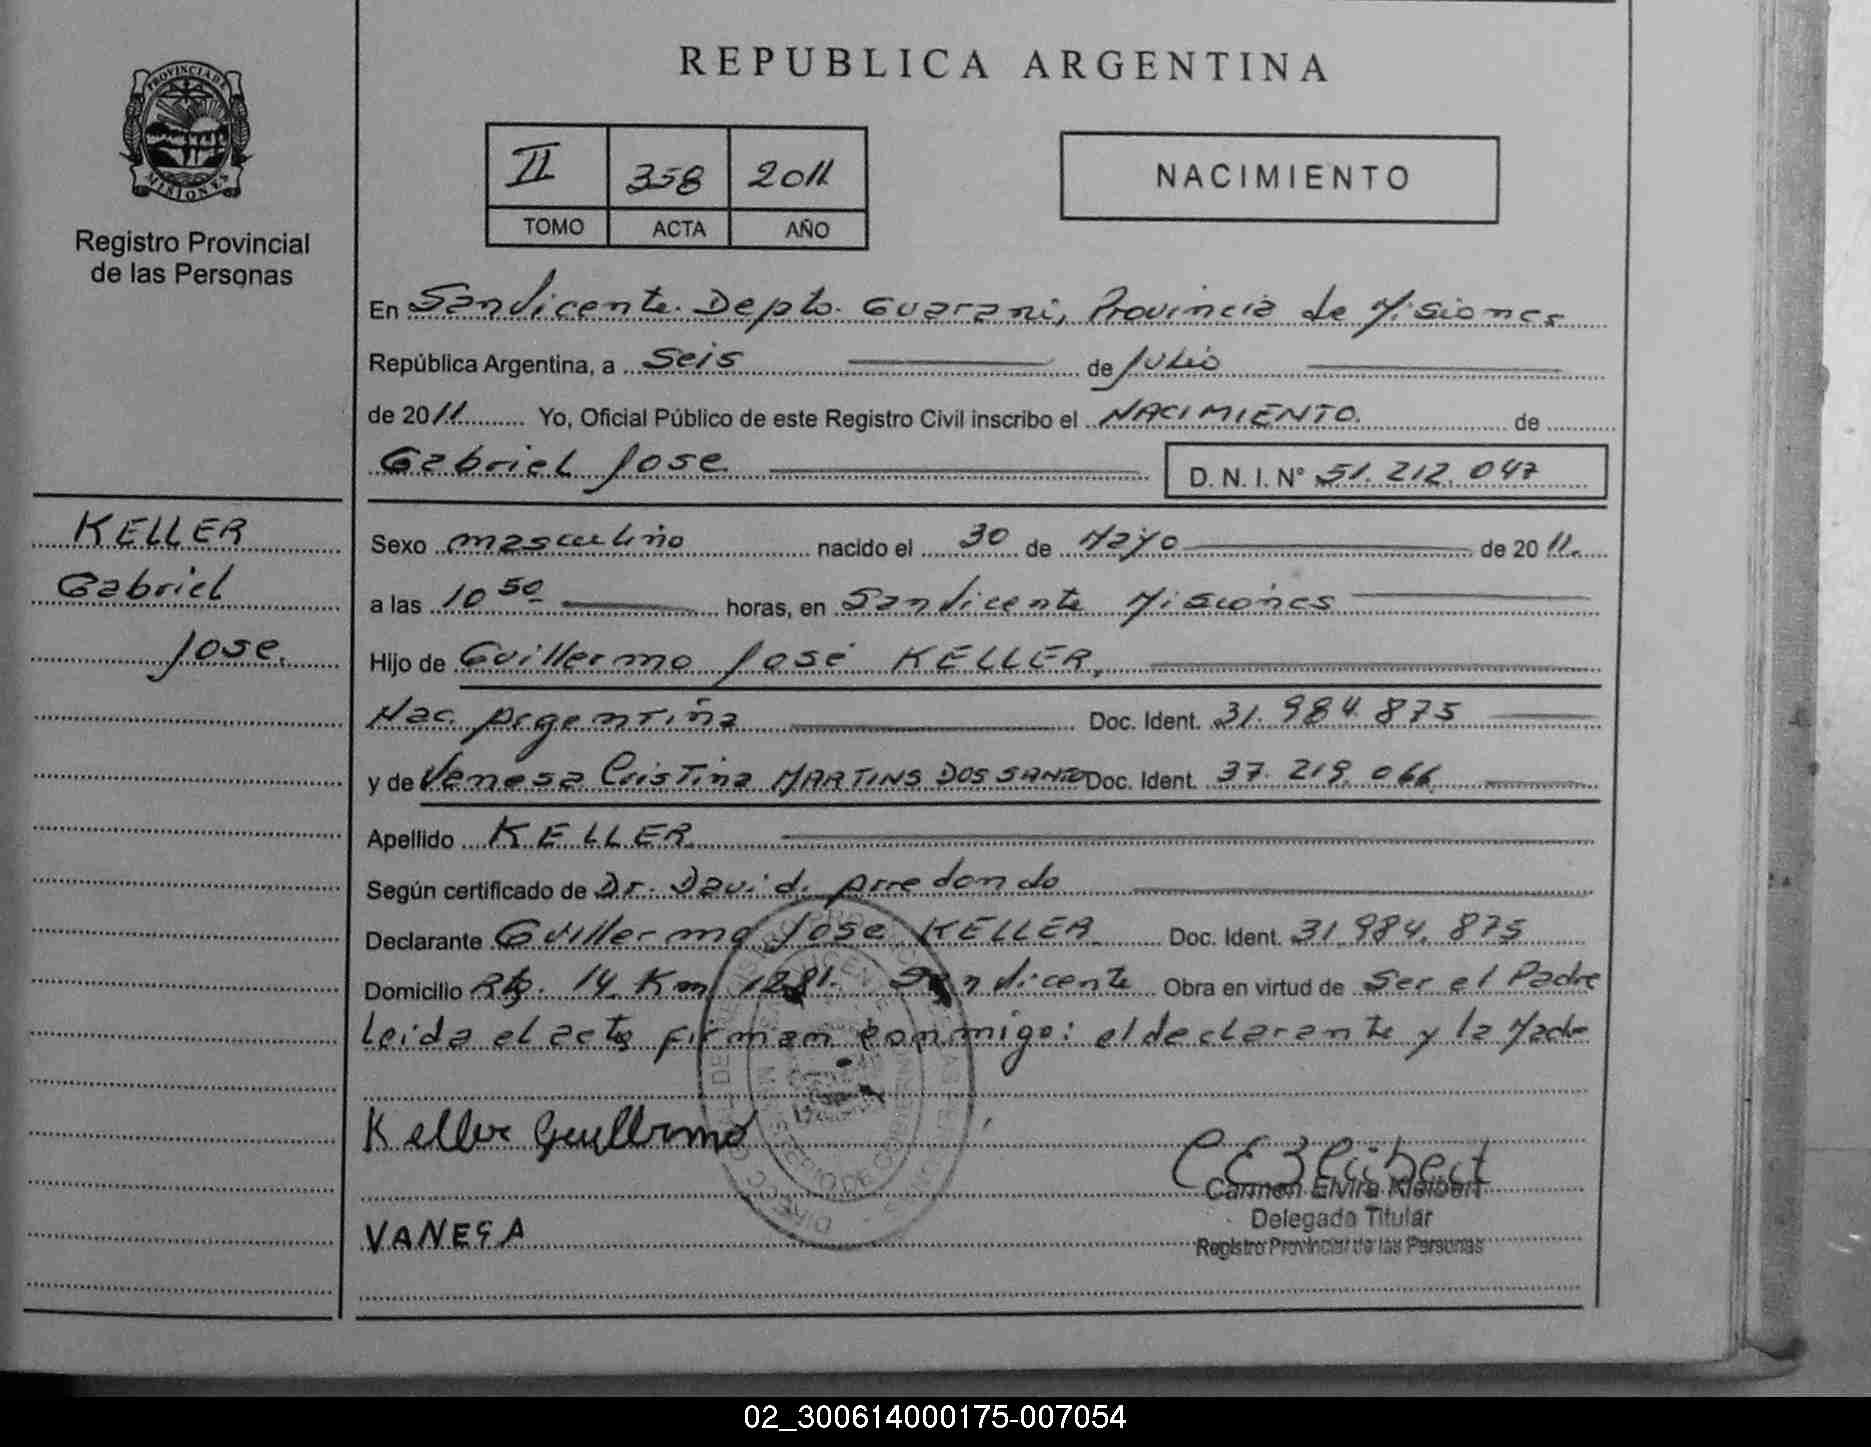 REPUBLICA ARGENTINA
PROVINCIA DE
MISIONES
Registro Provincial
de las Personas
II 358 2011
TOMO ACTA AÑO
NACIMIENTO
En San Vicente. Depto. Guarani, Provincia de Misiones
República Argentina, a Seis de Julio
de 2011 Yo, Oficial Público de este Registro Civil inscribo el NACIMIENTO. de
Gabriel Jose D. N. I. N° 51.212.047
KELLER
Gabriel
Jose.
Sexo masculino nacido el 30 de Mayo de 2011.
a las 10 50 horas, en San Vicente Misiones
Hijo de Guillermo José KELLER,
Nac. Argentina Doc. Ident. 31.984.875
y de Venesa Cristina MARTINS DOS SANTO Doc. Ident. 37.219.066
Apellido KELLER
Según certificado de Dr. David Arredondo
Declarante Guillermo Jose KELLER Doc. Ident. 31.984.875
Domicilio 14 Km 1281. San Vicente Obra en virtud de Ser el Padre
Leida el acta firman conmigo: el declarante y la Madre
Keller Guillermo
Carmen Elvira Kleibert
Delegada Titular
Registro Provincial de las Personas
VANESA
02_300614000175-007054